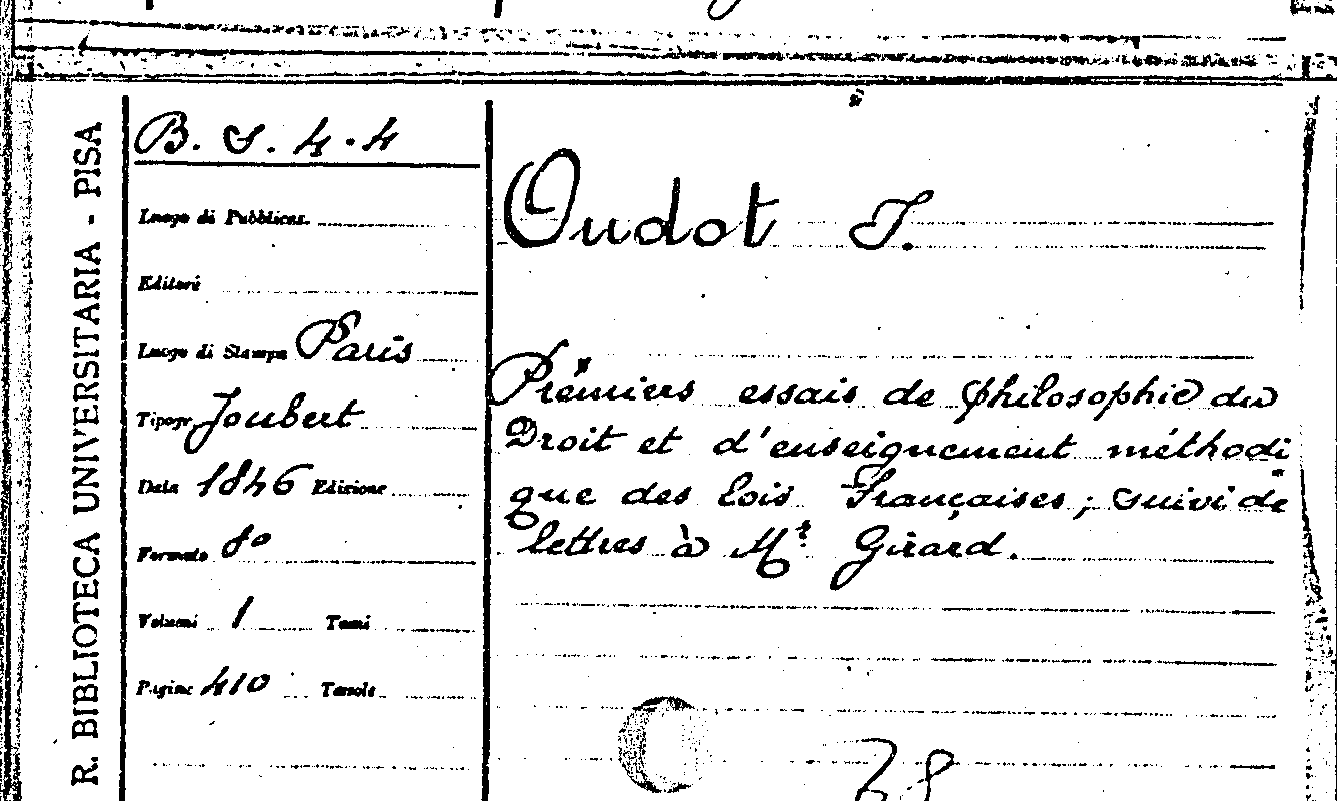 R. BIBLIOTECA UNIVERSITARIA - PISA
B. S. 4.4
Luogo di Pubblicaz.
Editore
Luogo di Stampa Paris
Tipogr. Joubert
Data 1846 Edizione
Formato 8º
Volumi 1 Tomi
Pagine 410 Tavole
Oudot J.
Premiers essais de philosophie du
Droit et d'enseignement méthodi
que des lois Françaises; suivi de
lettres à Mr Girard.
38